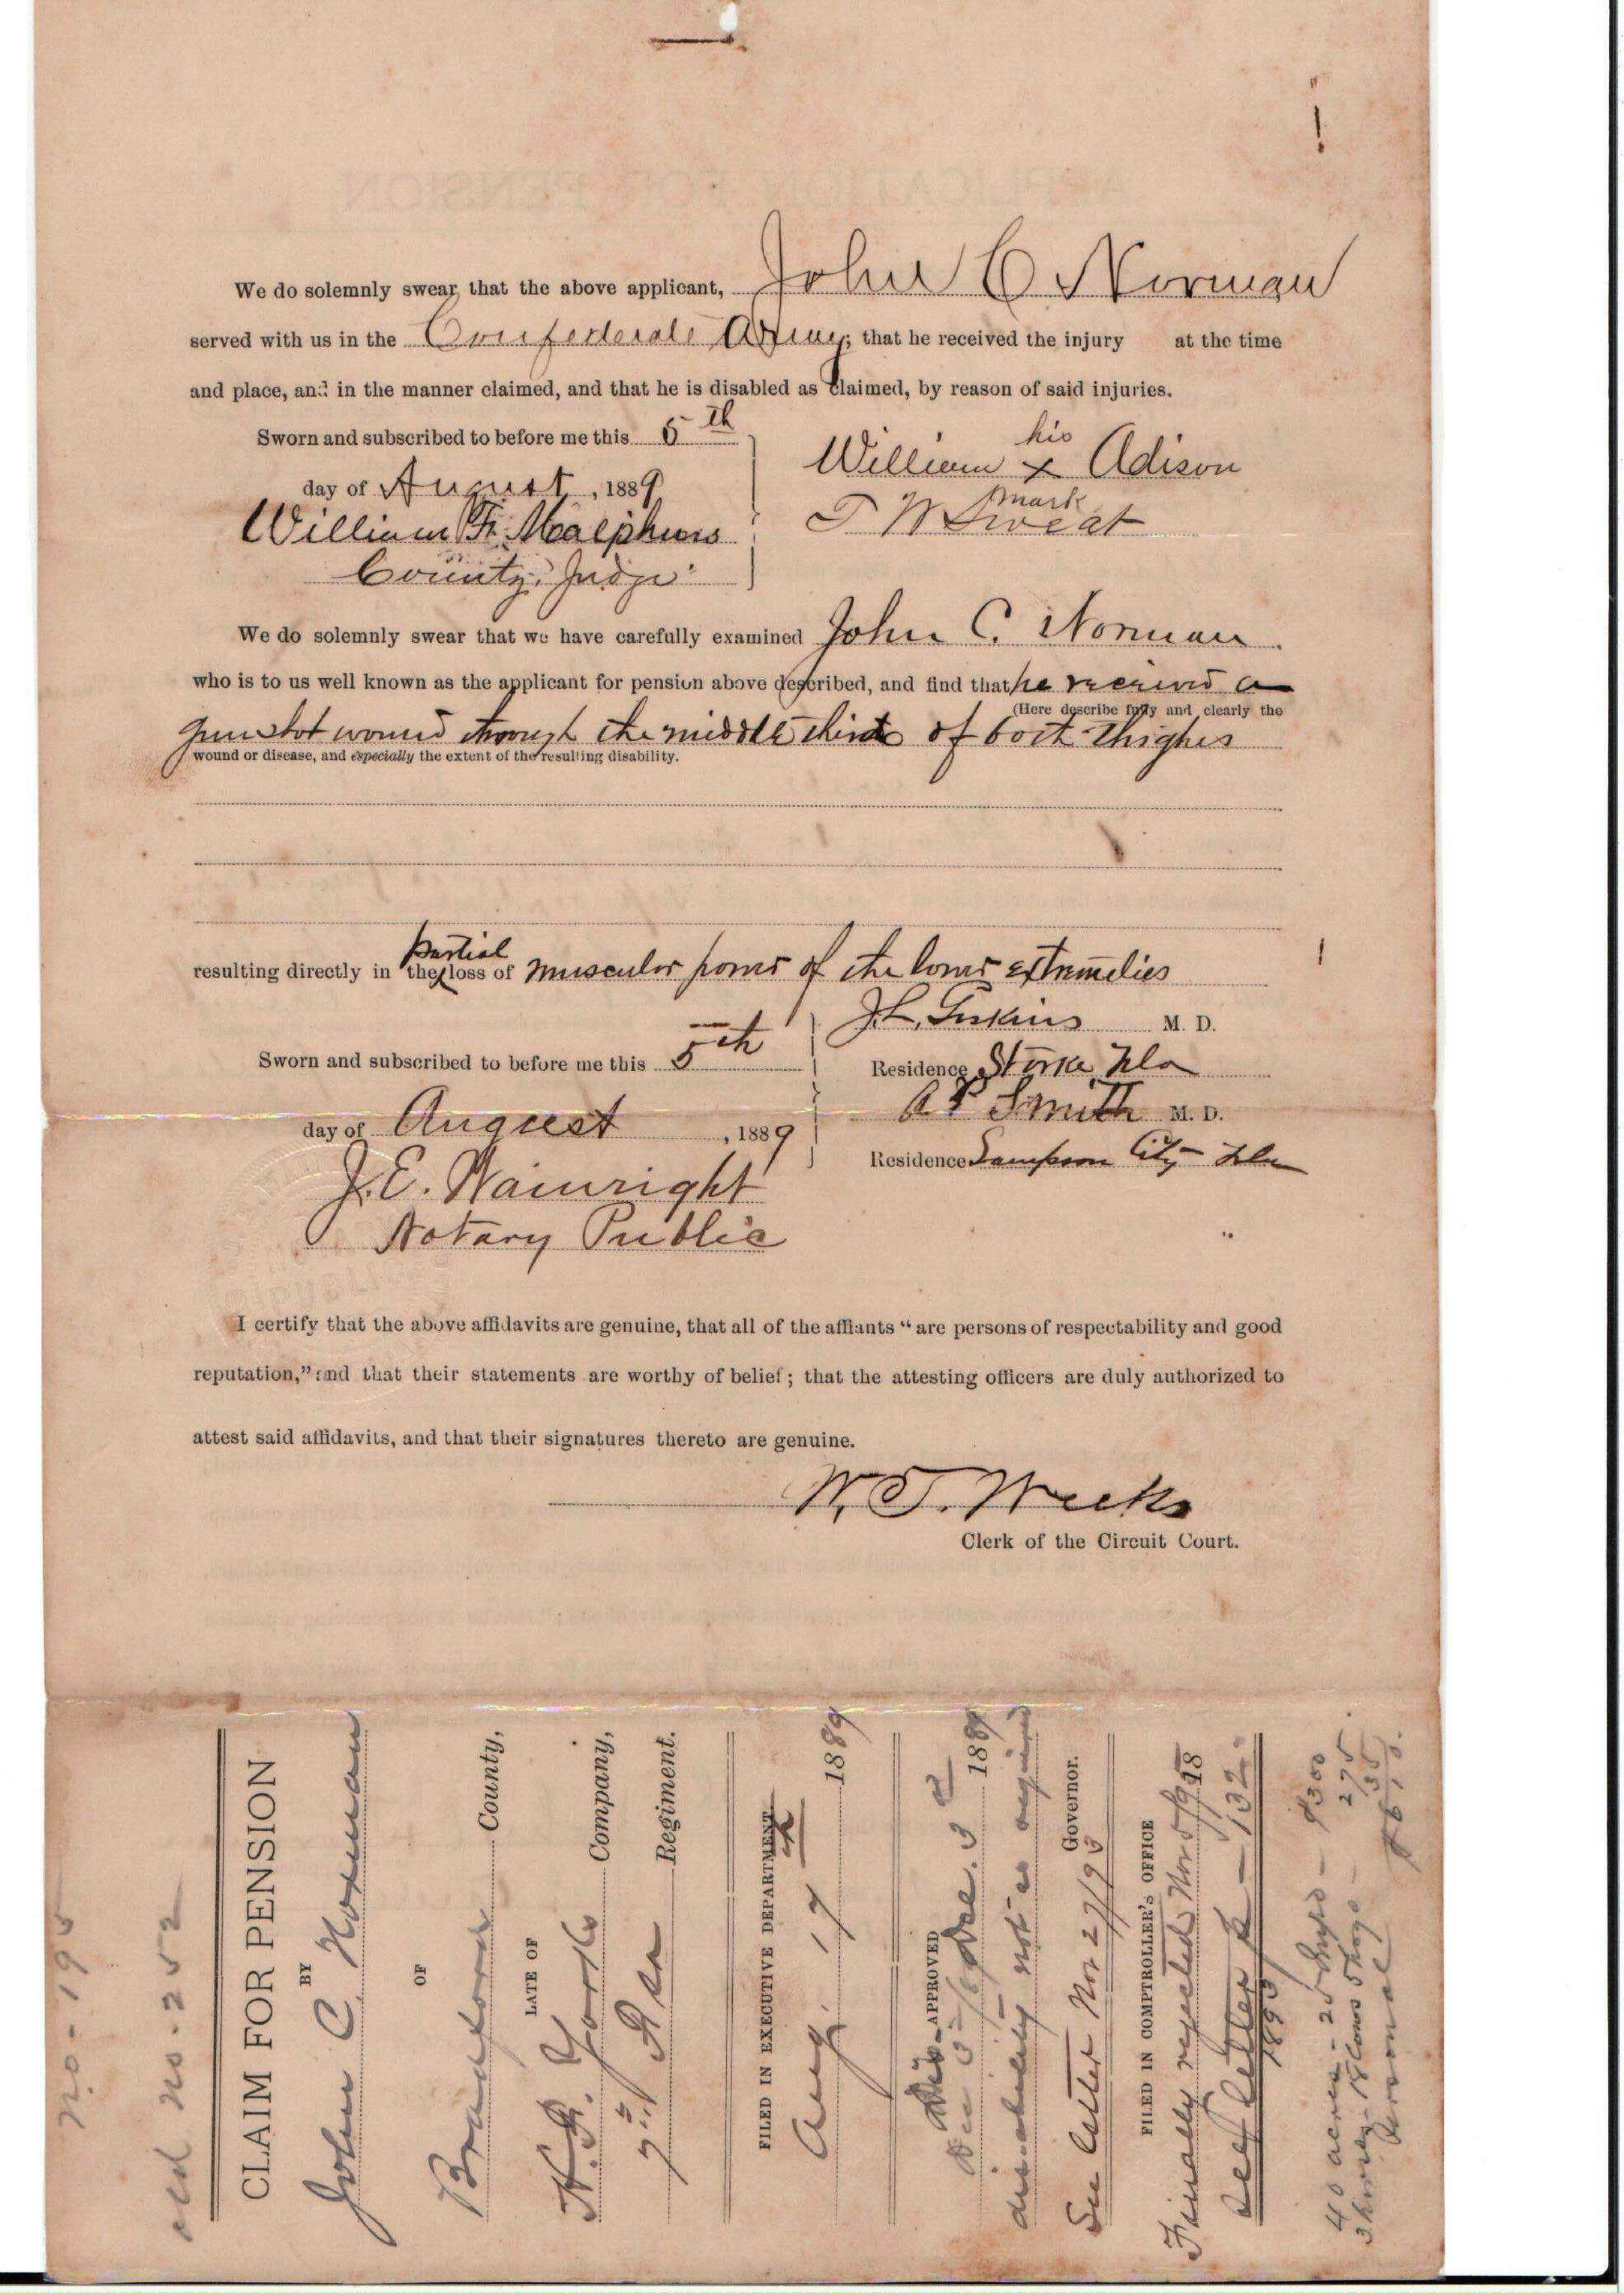 We do solemnly swear that the above applicant, John C Norman
served with us in the Confederate Army; that he received the injury at the time
and place, and in the manner claimed, and that he is disabled as claimed, by reason of said injuries.
Sworn and subscribed to before me this 5th
day of August, 1889
William F. Malphurs
County Judge
his
William x Adison
mark
T W Sweat
We do solemnly swear that we have carefully examined John C. Norman
who is to us well known as the applicant for pension above described, and find that he received a
(Here describe fully and clearly the
gunshot wound through the middle third of both thighs
wound or disease, and especially the extent of the resulting disability.
partial
resulting directly in the loss of muscular power of the lower extremities
Sworn and subscribed to before me this 5th
day of August, 1889
J. E. Wainwright
Notary Public
J. L. Gaskins M. D.
Residence Starke Fla
A P Smith M. D.
Residence Sampson City Fla
I certify that the above affidavits are genuine, that all of the affiants "are persons of respectability and good
reputation," and that their statements are worthy of belief; that the attesting officers are duly authorized to
attest said affidavits, and that their signatures thereto are genuine.
W. T. Weeks
Clerk of the Circuit Court.
No-195
old No. 252
CLAIM FOR PENSION
BY
John C. Norman
OF
Bradford County,
LATE OF
Company,
7th Fla Regiment.
FILED IN EXECUTIVE DEPARTMENT
Aug. 17 1889
APPROVED
Dec. 3 1889
disability not as required
Governor.
See letter Nov 27/93
FILED IN COMPTROLLER'S OFFICE
18
Finally rejected Nov
See Letter 132
1893
40 acres - 25 - $300
3 horses - 18 cows 5 hogs - 275
Personal 35
$610.